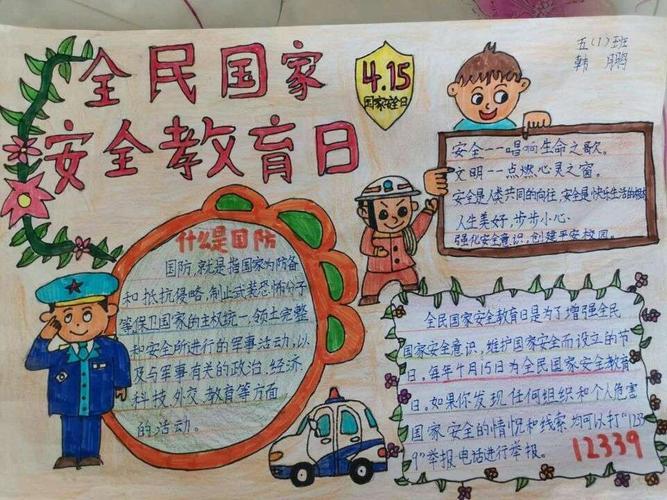 全民国家
安全教育日
4.15
国家安全日
五(1)班
韩鹏
安全--唱响生命之歌。
文明--点燃心灵之窗。
安全是人类共同的向往,安全是快乐生活的
人生美好,步步小心
强化安全意识,创建平安校园
什么是国防
国防,就是指国家为防备
和抵抗侵略,制止武装恐怖分子
等保卫国家的主权统一,领土完整
和安全所进行的军事活动,以
及与军事有关的政治,经济,
科技,外交,教育等方面
的活动。
全民国家安全教育日是为了增强全民
国家安全意识,维护国家安全而设立的节
日。每年4月15日为全民国家安全教育
日。如果你发现任何组织和个人危害
国家安全的情况和线索均可以打"1233
9"举报电话进行举报。
12339